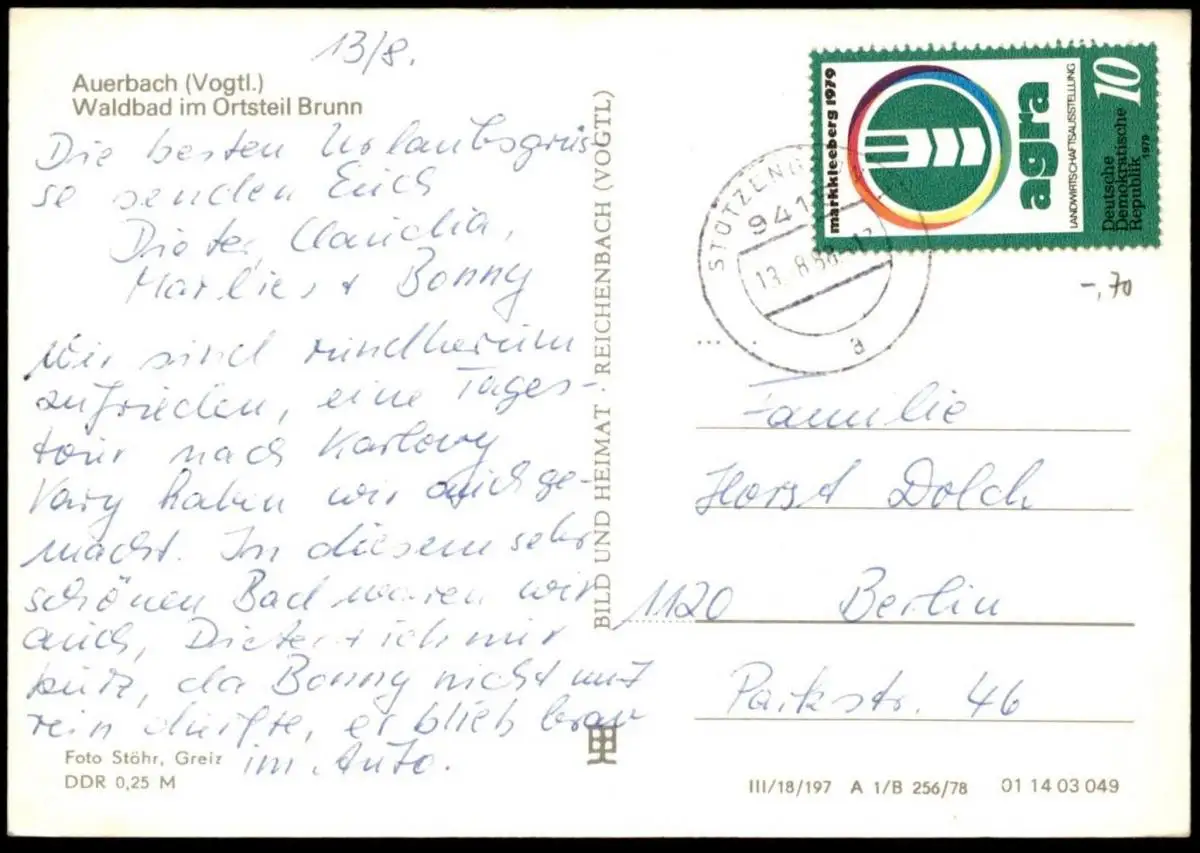 13/8.
Auerbach (Vogtl.)
Waldbad im Ortsteil Brunn
Die besten Urlaubsgrüs-
se senden Erich
Dieter, Claudia,
Marlies + Bonny
Wir sind rundherum
zufrieden, eine Tages-
tour nach Karlovy
Vary haben wir auch ge-
macht. In diesem sehr
schönen Bad waren wir
auch, Dieter + ich nur
kurz, da Bonny nicht mit
rein durfte, er blieb brav
im Auto.
Foto Stöhr, Greiz
DDR 0,25 M
BILD UND HEIMAT · REICHENBACH (VOGTL)
markkleeberg 1979
agra
LANDWIRTSCHAFTSAUSSTELLUNG
Deutsche
Demokratische
Republik 1979
10
STÜTZENG
941
13.-8.88-12
a
-,70
Familie
Horst Dolch
1120 Berlin
Parkstr. 46
III/18/197 A 1/B 256/78 01 14 03 049